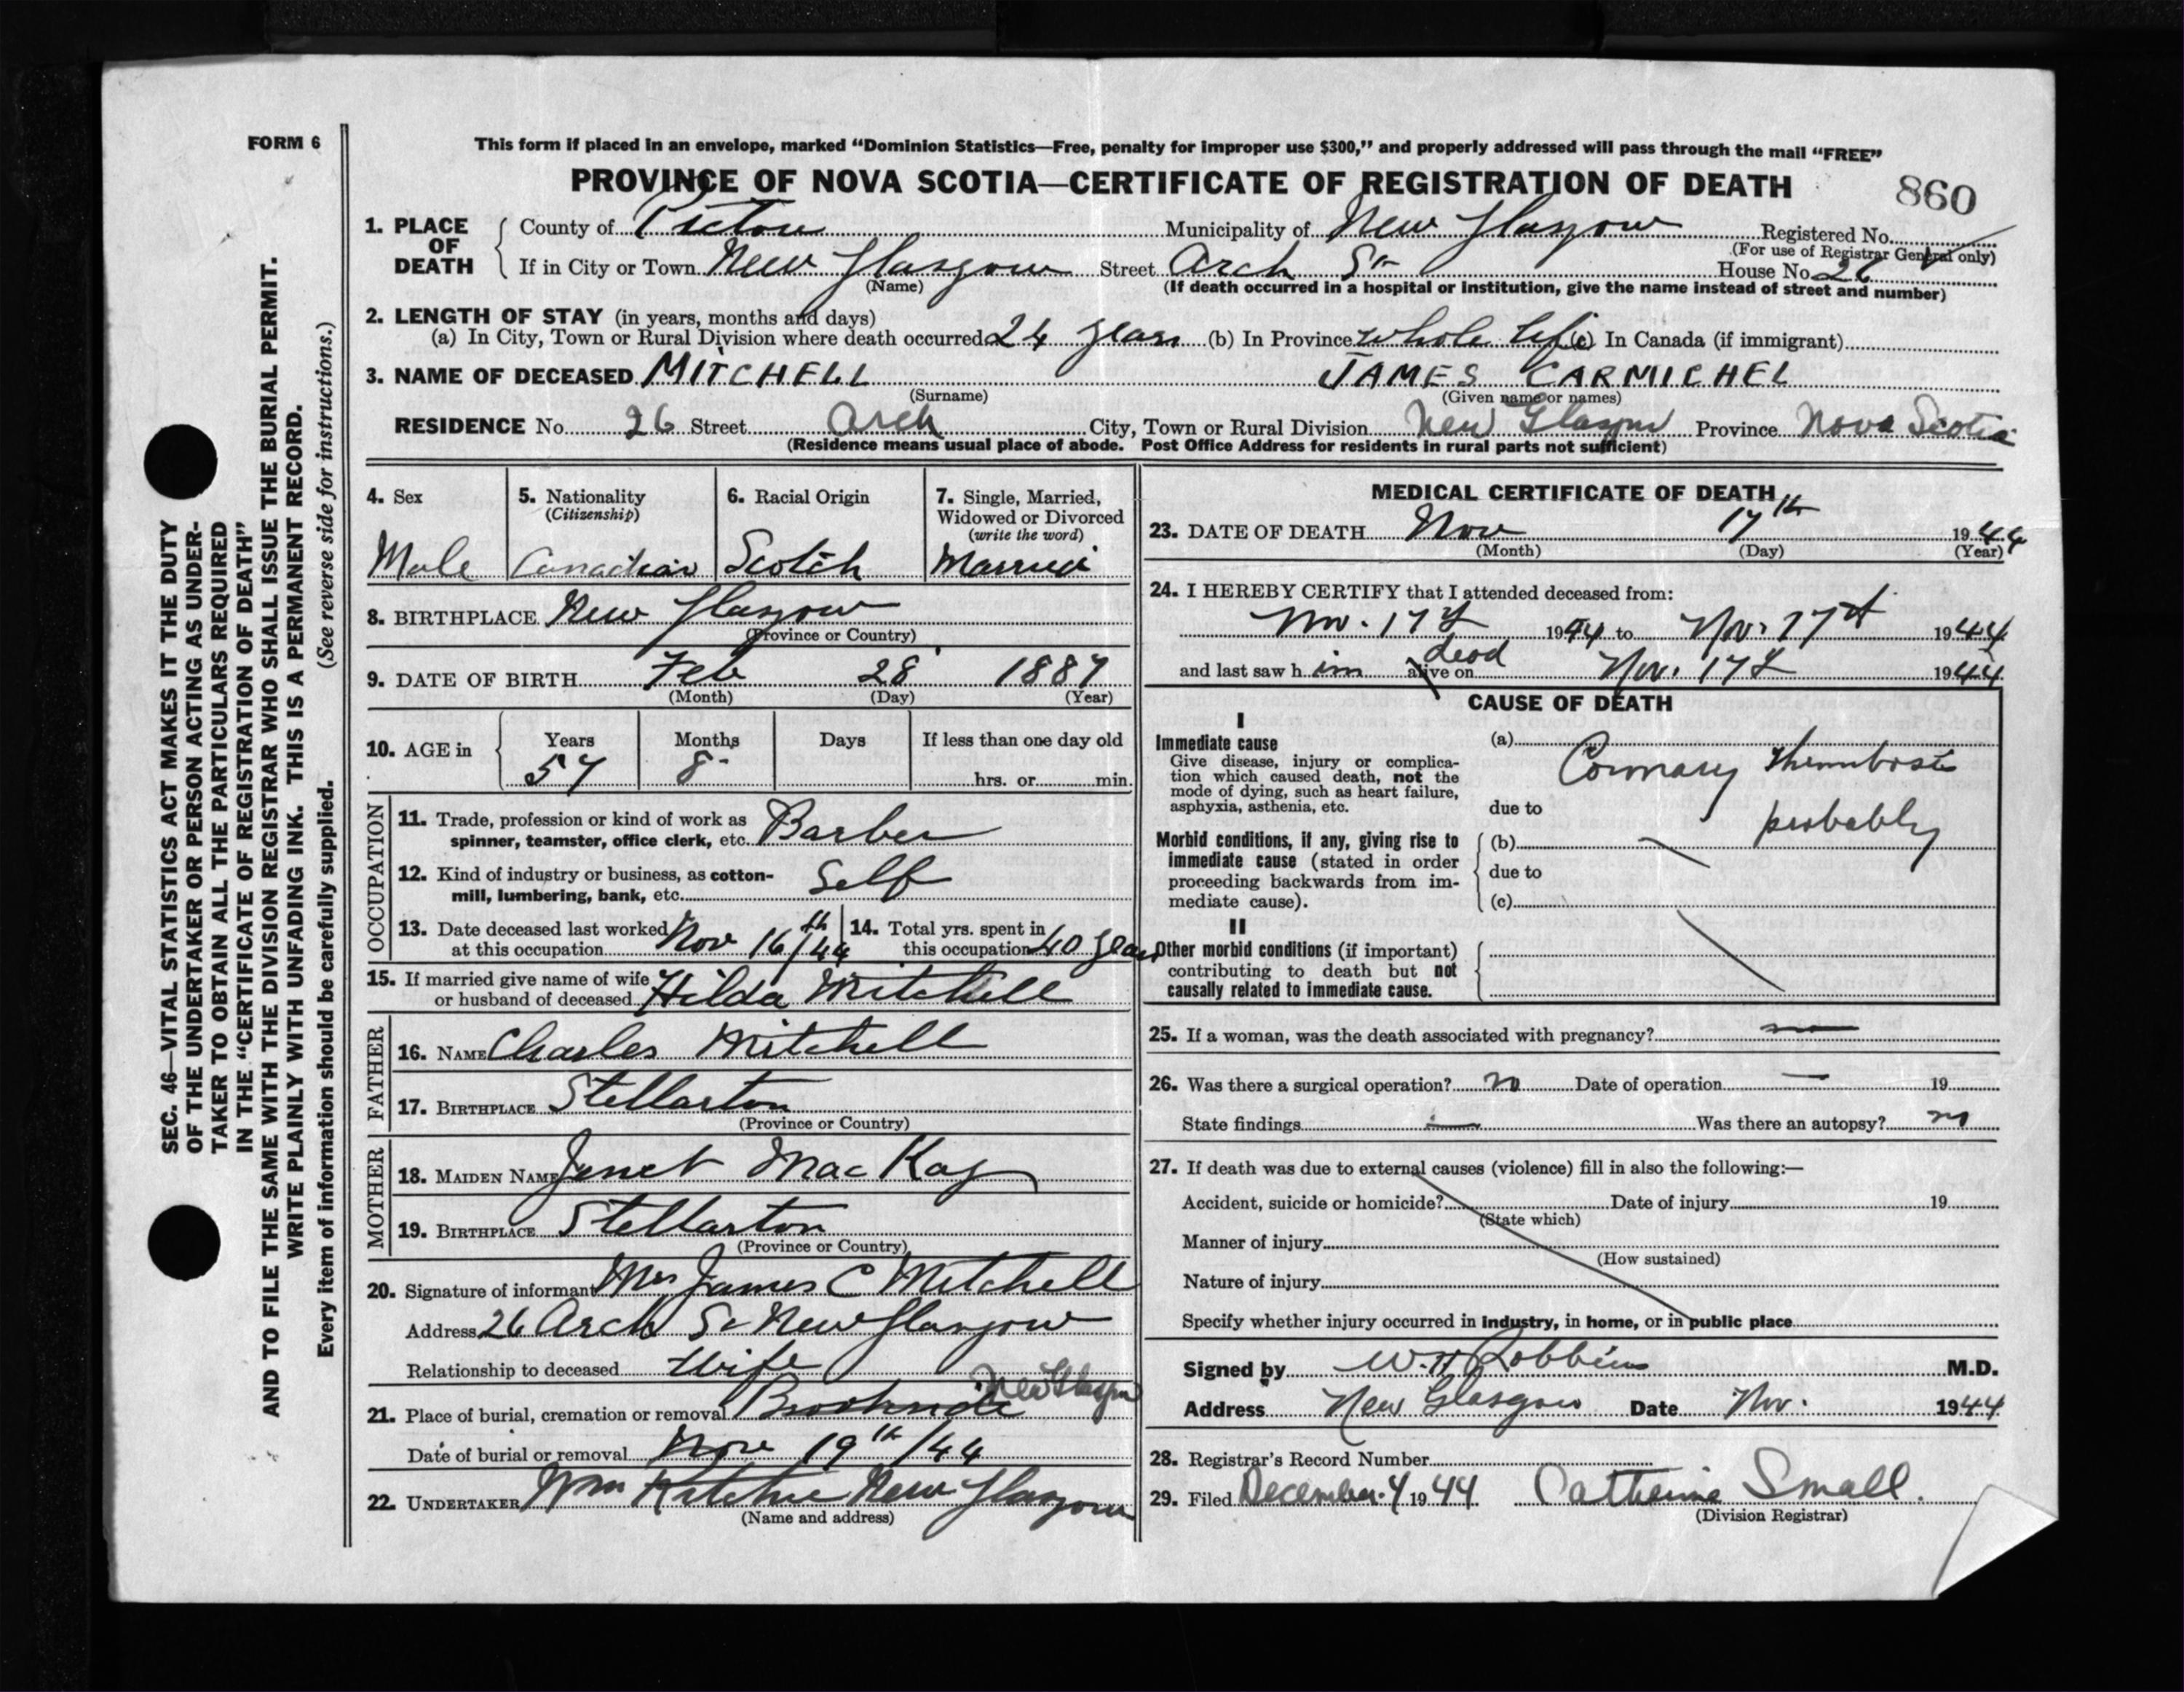 FORM 6
This form if placed in an envelope, marked "Dominion Statistics—Free, penalty for improper use $300," and properly addressed will pass through the mail "FREE"
PROVINCE OF NOVA SCOTIA—CERTIFICATE OF REGISTRATION OF DEATH
860
1. PLACE OF DEATH
County of Pictou Municipality of New Glasgow Registered No.
(For use of Registrar General only)
If in City or Town New Glasgow Street Arch St House No. 26
(Name) (If death occurred in a hospital or institution, give the name instead of street and number)
2. LENGTH OF STAY (in years, months and days)
(a) In City, Town or Rural Division where death occurred 24 years (b) In Province whole life (c) In Canada (if immigrant)
3. NAME OF DECEASED MITCHELL JAMES CARMICHEL
(Surname) (Given name or names)
RESIDENCE No. 26 Street Arch City, Town or Rural Division New Glasgow Province Nova Scotia
(Residence means usual place of abode. Post Office Address for residents in rural parts not sufficient)
4. Sex
Male
5. Nationality
(Citizenship)
Canadian
6. Racial Origin
Scotch
7. Single, Married,
Widowed or Divorced
(write the word)
Married
8. BIRTHPLACE New Glasgow
(Province or Country)
9. DATE OF BIRTH Feb 28 1887
(Month) (Day) (Year)
10. AGE in Years Months Days If less than one day old
57 8 hrs. or min.
OCCUPATION
11. Trade, profession or kind of work as
spinner, teamster, office clerk, etc. Barber
12. Kind of industry or business, as cotton-
mill, lumbering, bank, etc. Self
13. Date deceased last worked
at this occupation Nov 16th/44
14. Total yrs. spent in
this occupation 40 years
15. If married give name of wife
or husband of deceased Hilda Mitchell
FATHER
16. NAME Charles Mitchell
17. BIRTHPLACE Stellarton
(Province or Country)
MOTHER
18. MAIDEN NAME Janet MacKay
19. BIRTHPLACE Stellarton
(Province or Country)
20. Signature of informant Mrs James C Mitchell
Address 26 Arch St New Glasgow
Relationship to deceased Wife
21. Place of burial, cremation or removal Brookside New Glasgow
Date of burial or removal Nov 19th/44
22. UNDERTAKER Wm Ritchie New Glasgow
(Name and address)
MEDICAL CERTIFICATE OF DEATH
23. DATE OF DEATH Nov 17th 1944
(Month) (Day) (Year)
24. I HEREBY CERTIFY that I attended deceased from:
Nov. 17th 1944 to Nov. 17th 1944
and last saw h im alive dead on Nov. 17th 1944
CAUSE OF DEATH
I
Immediate cause
Give disease, injury or complica-
tion which caused death, not the
mode of dying, such as heart failure,
asphyxia, asthenia, etc.
(a) Coronary Thrombosis
due to probably
Morbid conditions, if any, giving rise to
immediate cause (stated in order
proceeding backwards from im-
mediate cause).
(b)
due to
(c)
II
Other morbid conditions (if important)
contributing to death but not
causally related to immediate cause.
25. If a woman, was the death associated with pregnancy?
26. Was there a surgical operation? no Date of operation — 19
State findings — Was there an autopsy? no
27. If death was due to external causes (violence) fill in also the following:—
Accident, suicide or homicide? Date of injury 19
(State which)
Manner of injury
(How sustained)
Nature of injury
Specify whether injury occurred in industry, in home, or in public place
Signed by W. H Robbins M.D.
Address New Glasgow Date Nov. 1944
28. Registrar's Record Number
29. Filed December 4 1944 Catherine Small.
(Division Registrar)
SEC. 46—VITAL STATISTICS ACT MAKES IT THE DUTY
OF THE UNDERTAKER OR PERSON ACTING AS UNDER-
TAKER TO OBTAIN ALL THE PARTICULARS REQUIRED
IN THE "CERTIFICATE OF REGISTRATION OF DEATH"
AND TO FILE THE SAME WITH THE DIVISION REGISTRAR WHO SHALL ISSUE THE BURIAL PERMIT.
WRITE PLAINLY WITH UNFADING INK. THIS IS A PERMANENT RECORD.
Every item of information should be carefully supplied. (See reverse side for instructions.)